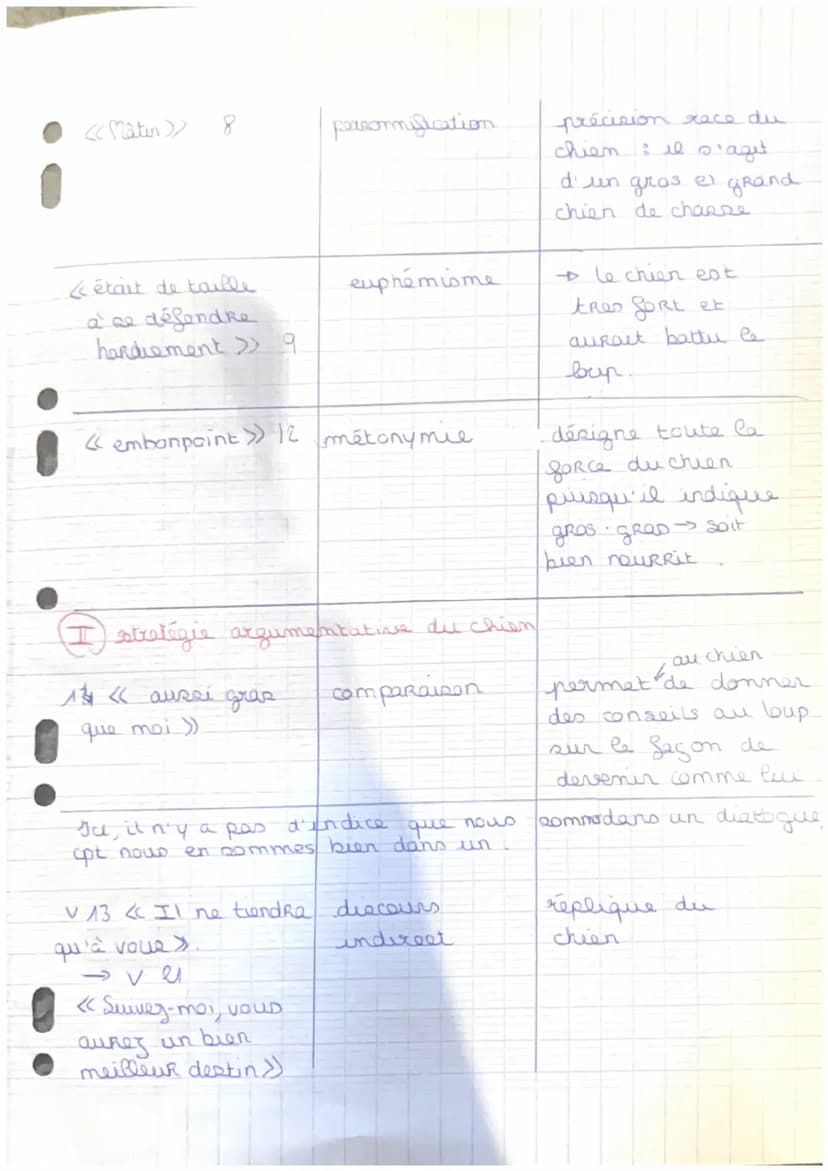 << Mâtin >> 8
personnification
précision race du
chien : il s'agit
d'un gros et grand
chien de chasse
<< était de taille
à se défendre
hardiement >> 9
euphémisme
→ le chien est
très fort et
aurait battu le
loup.
<< embonpoint >> 12
métonymie
désigne toute la
force du chien
puisqu'il indique
gros. gras → soit
bien nourrit.
II stratégie argumentative du chien
14 << aussi gras
que moi >>
comparaison
au chien
permet de donner
des conseils au loup
sur la façon de
devenir comme lui
Ici, il n'y a pas d'indice que nous sommes dans un dialogue,
cpt nous en sommes bien dans un.
V 13 << Il ne tiendra
qu'à vous >>.
→ V 21
<< Suivez-moi, vous
aurez un bien
meilleur destin >>
discours
indirect
réplique du
chien